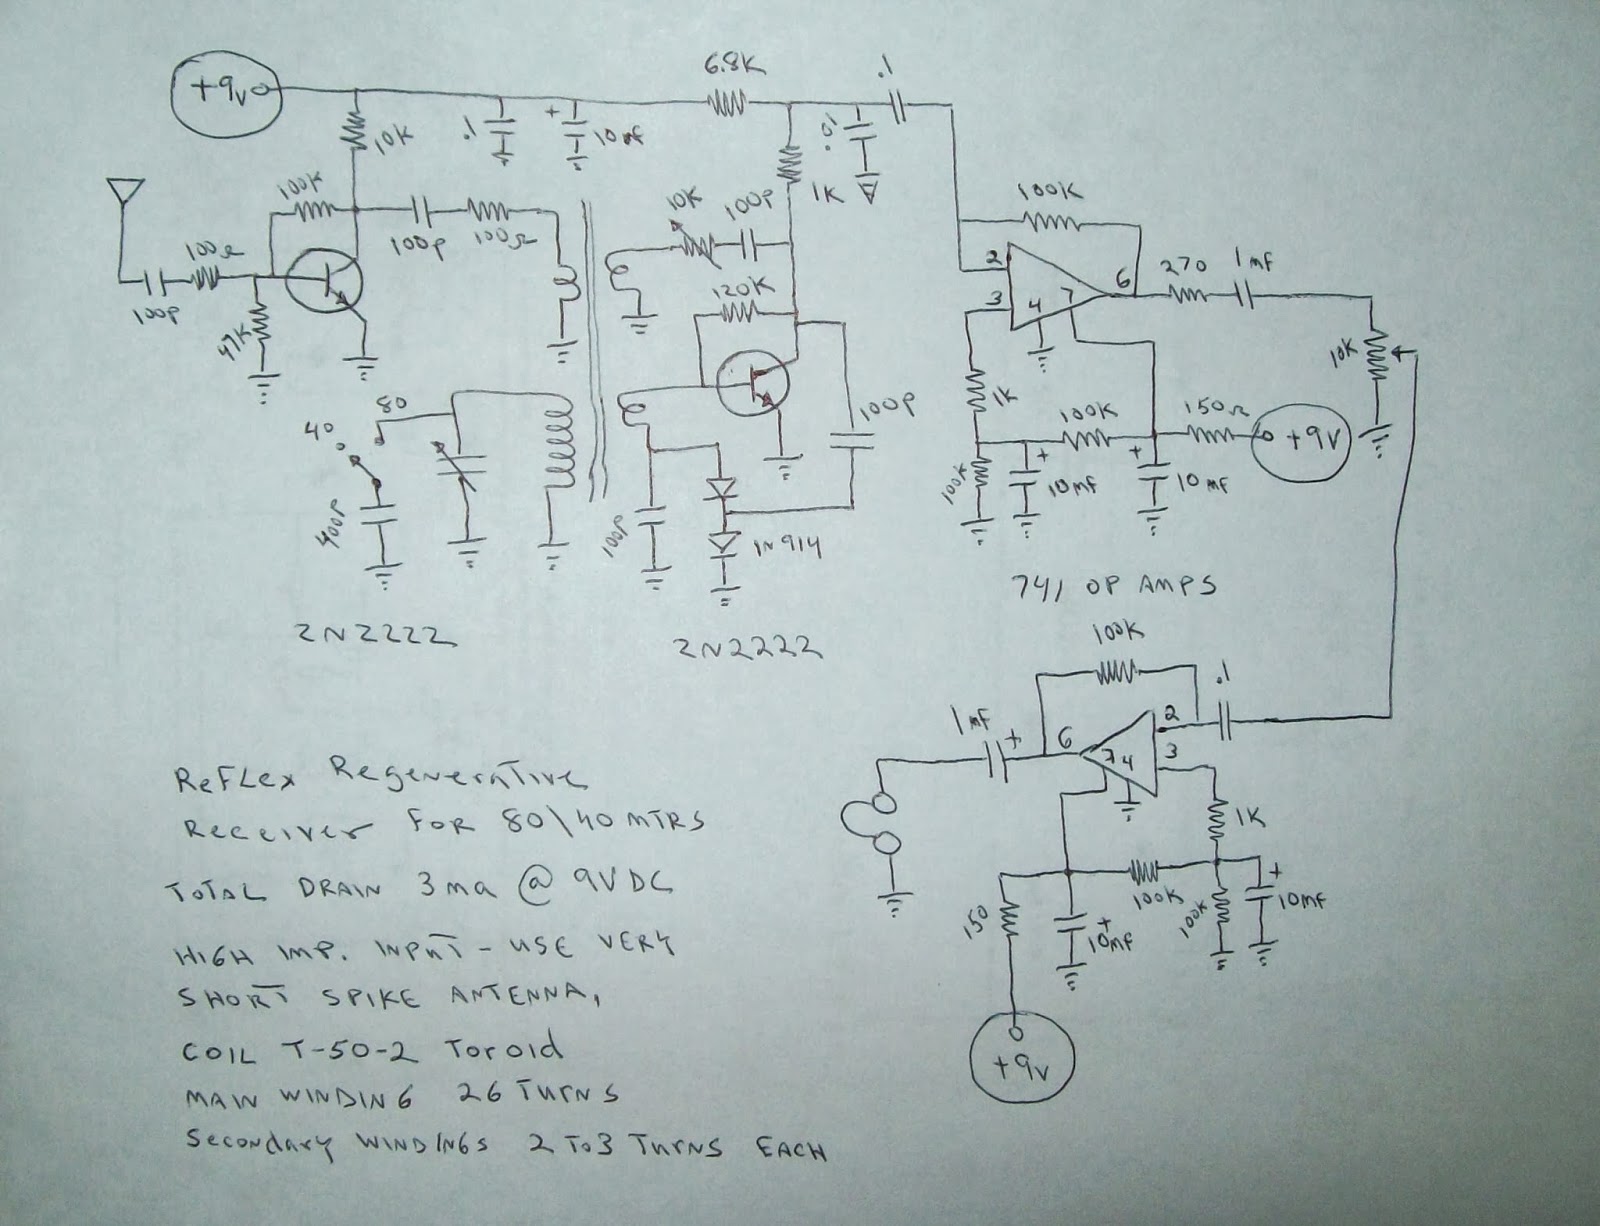 +9V
6.8K
.1
10K
.1
+
10mf
.01
1K
100K
10K
100p
100K
100p
100Ω
100Ω
100p
47K
120K
2
3
4
7
6
270
1mf
10K
80
40
400p
100p
100p
1N914
1K
100K
150Ω
+9V
100K
+
10mf
+
10mf
741 OP AMPS
2N2222
2N2222
100K
.1
1mf
+
6
7
4
2
3
1K
100K
100K
+
10mf
150
+
10mf
+9V
ReFLex RegenerATive
Receiver FOR 80\40 MTRS
TOTAL DRAIN 3ma @ 9VDC
HIGH IMP. INPUT - USE VERY
SHORT SPIKE ANTENNA,
COIL T-50-2 Toroid
MAIN WINDING 26 TURNS
Secondary WINDINGS 2 To 3 TURNS EACH